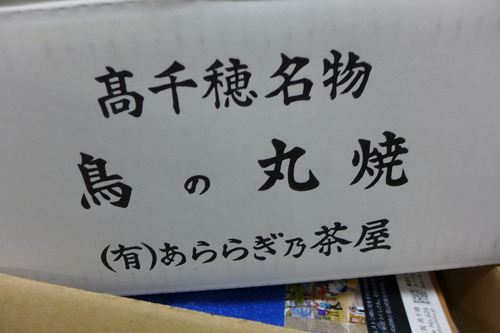 髙千穂名物
鳥の丸焼
(有)あららぎ乃茶屋